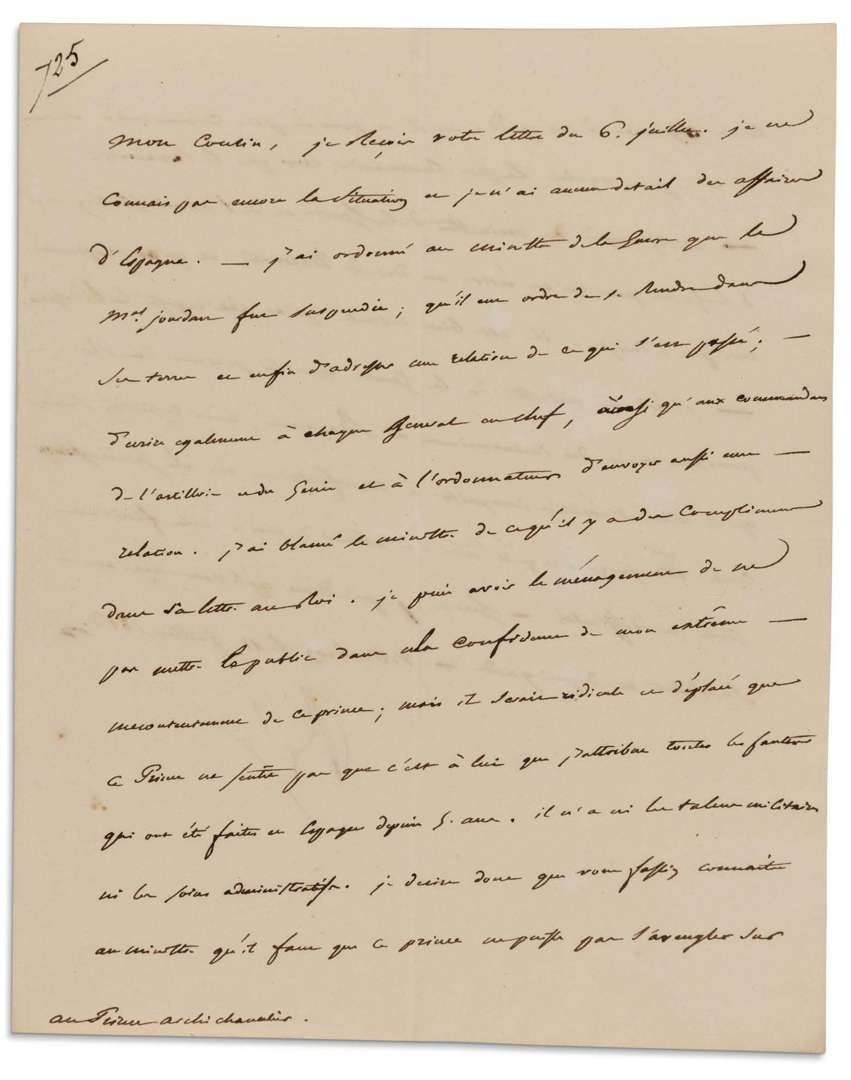 725
Mon Cousin, je Reçois votre lettre du 6. juillet. je ne
Connais pas encore la Situation et je n'ai aucun detail des affaires
d'Espagne. — j'ai ordonné au ministre de la Guerre que le
Mal. jourdan fut Suspendu ; qu'il eut ordre de se Rendre dans
Sa terre et enfin d'adresser une relation de ce qui s'est passé ; —
d'ecrire egalement à chaque General en chef, ainsi qu'aux commandans
de l'artillerie et du Genie et à l'ordonnateur, d'envoyer aussi une —
relation. j'ai blamé le ministre de ce qu'il y a des Complimens
dans Sa lettre au Roi. je puis avoir le ménagement de ne
pas mettre le public dans la confidence de mon extrême —
mecontentement de ce prince ; mais il Serait ridicule et déplacé que
ce Prince ne sentit pas que c'est à lui que j'attribue toutes les fautes
qui ont été faites en Espagne depuis 5. ans. il n'a ni les talens militaires
ni les soins administratifs. je desire donc que vous fassiez connaitre
au ministre qu'il faut que ce prince ne puisse pas s'aveugler sur
au Prince archichancelier.